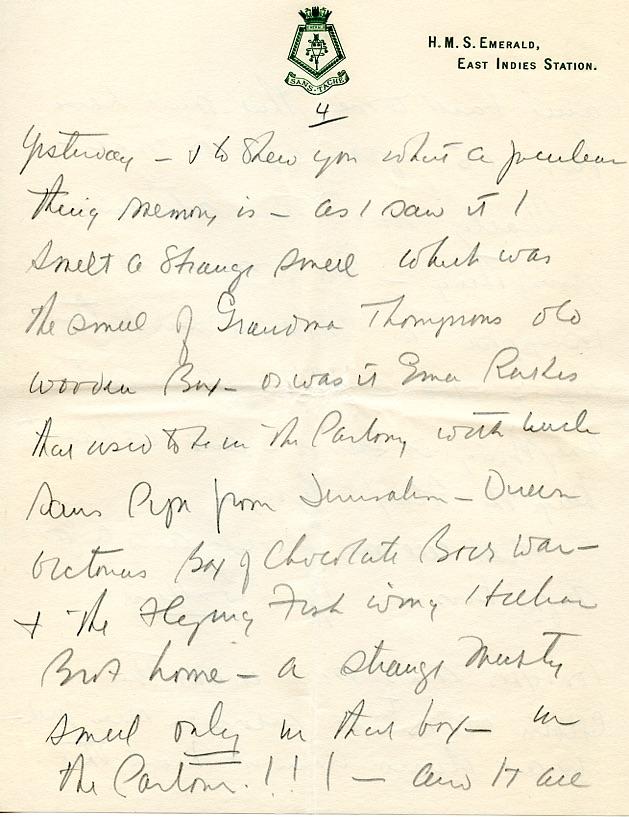 EMERALD
SANS·TACHE
H.M.S. EMERALD,
EAST INDIES STATION.
4
Yesterday – & to shew you what a peculiar
thing memory is – as I saw it I
smelt a strange smell which was
the smell of Grandma Thompsons old
wooden Box – or was it
that used to be in the Parlour, with Uncle
Sams Pipe from Jerusalem – Queen
Victorias Box of Chocolate Boer War –
& the Flying Fish wing
Brot home – a strange musty
smell only in that box – in
the Parlour. !!! – and it all